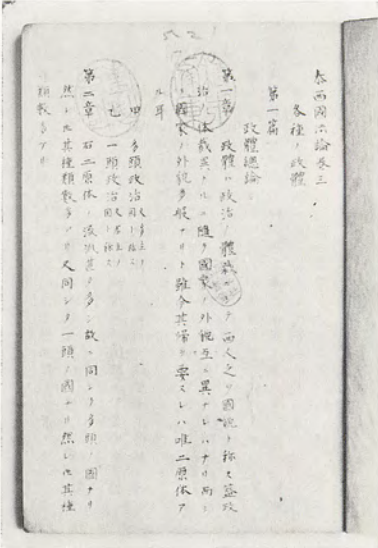 泰西國法論卷三
各種ノ政體
第一篇
政體總論
第一章 政體ハ政治ノ體裁ニシテ西人之ヲ國貌ト称ス蓋政
治ノ体裁異ナルニ随ヲ國家ノ外貌互ニ異ナレハナリ而シ
國家ノ外貌多般ナリト雖今其帰ヲ要スレハ唯二原体ア
ル耳
甲 多頭政治
乙 一頭政治
第二章 右二原体ノ流派甚タ多シ故ニ同シク多頭ノ國ナリ
然レ𪜈其種類數多アリ又同シク一頭ノ國ナリ然レ𪜈其種
類數多アリ